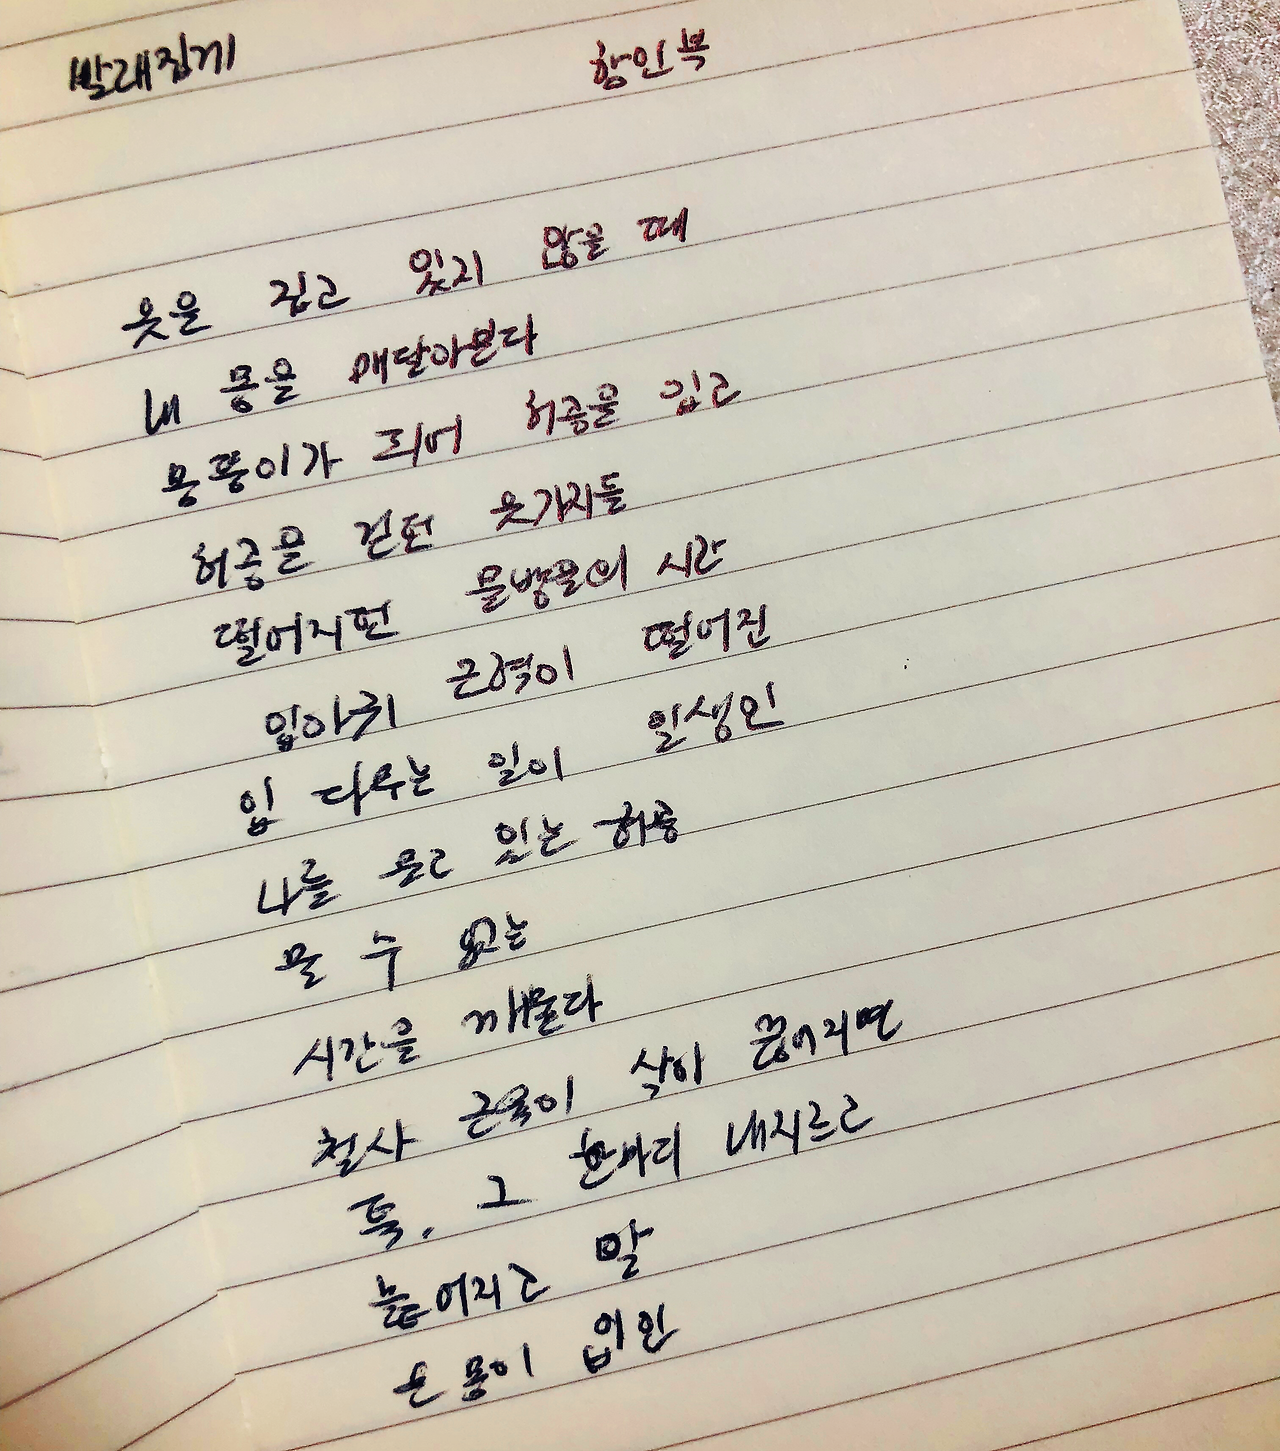 빨래집게 함인복
옷을 집고 있지 않을 때
내 몸을 매달아본다
몸뚱이가 되어 허공을 입고
허공을 걷던 옷가지들
떨어지던 물방울의 시간
입아귀 근력이 떨어진
입 다무는 일이 일생인
나를 물고 있는 허공
물 수 없는
시간을 깨물다
철사 근육이 삭아 끊어지면
툭, 그 한마디 내지르고
흩어지고 말
온몸이 입인